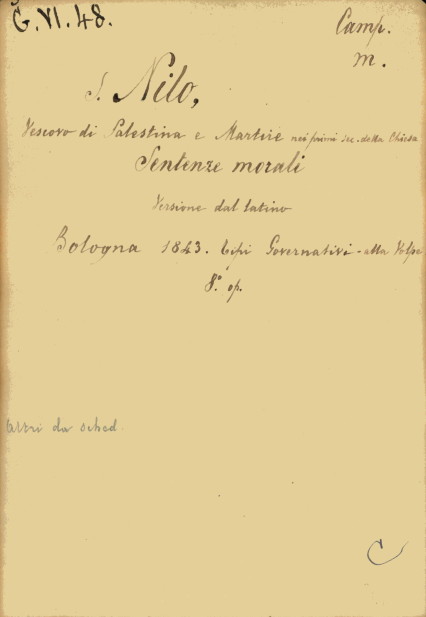 G.VI.48.
Camp.
m.
S. Nilo,
Vescovo di Palestina e Martire nei primi sec. della Chiesa
Sentenze morali
Versione dal latino
Bologna 1843. Tipi Governativi - alla Volpe
8.° op.
altri da sched.
C